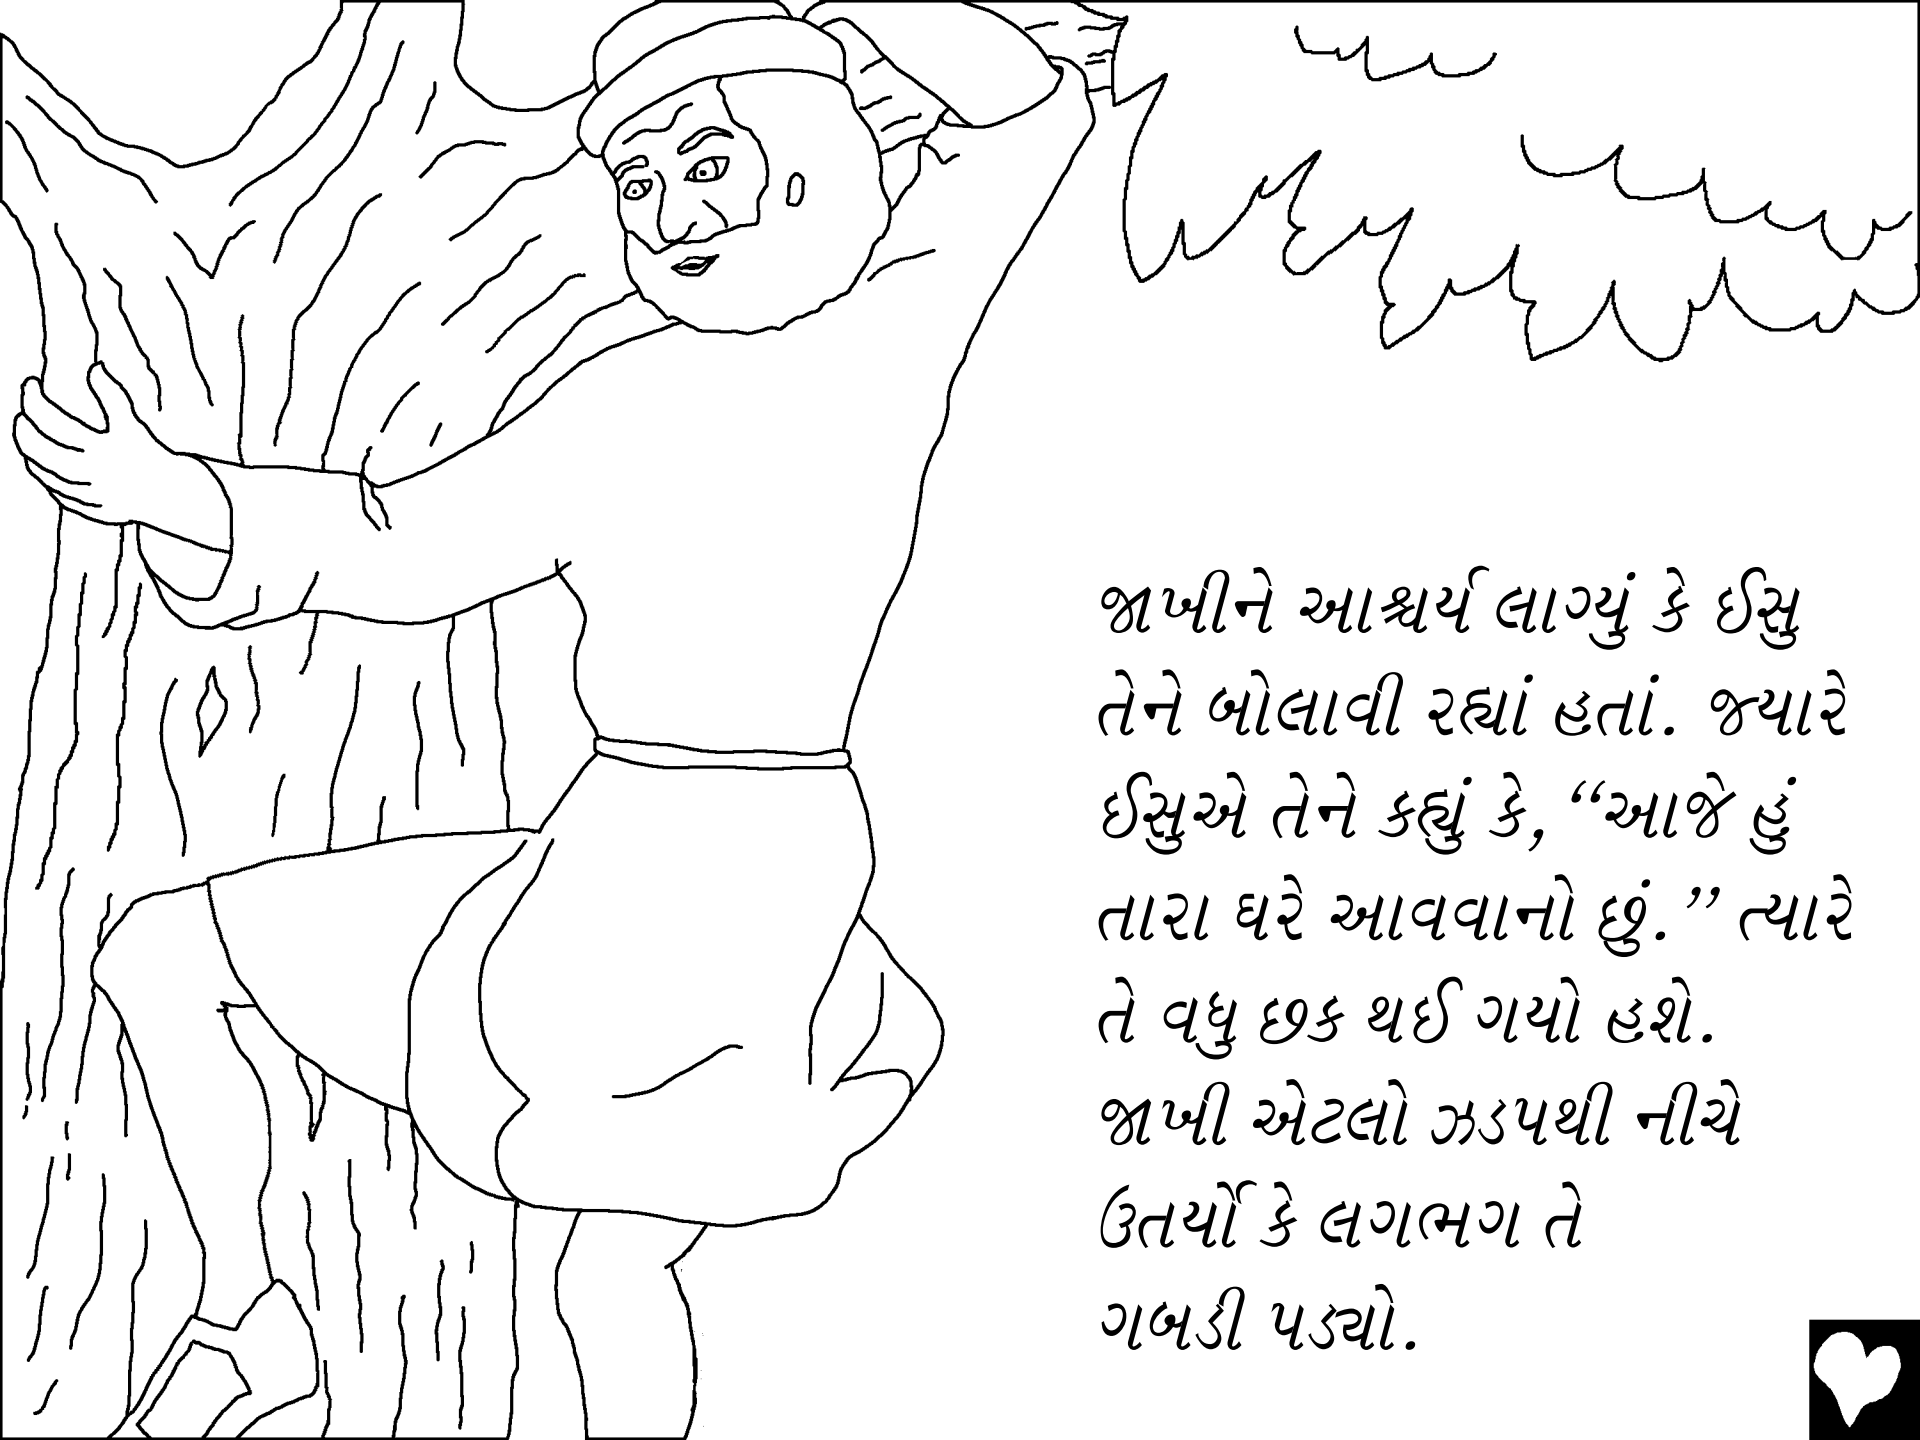 જાખીને આશ્ચર્ય લાગ્યું કે ઈસુ
તેને બોલાવી રહ્યાં હતાં. જ્યારે
ઈસુએ તેને કહ્યું કે, “આજે હું
તારા ઘરે આવવાનો છું.” ત્યારે
તે વધુ છક થઈ ગયો હશે.
જાખી એટલો ઝડપથી નીચે
ઉતર્યો કે લગભગ તે
ગબડી પડ્યો.